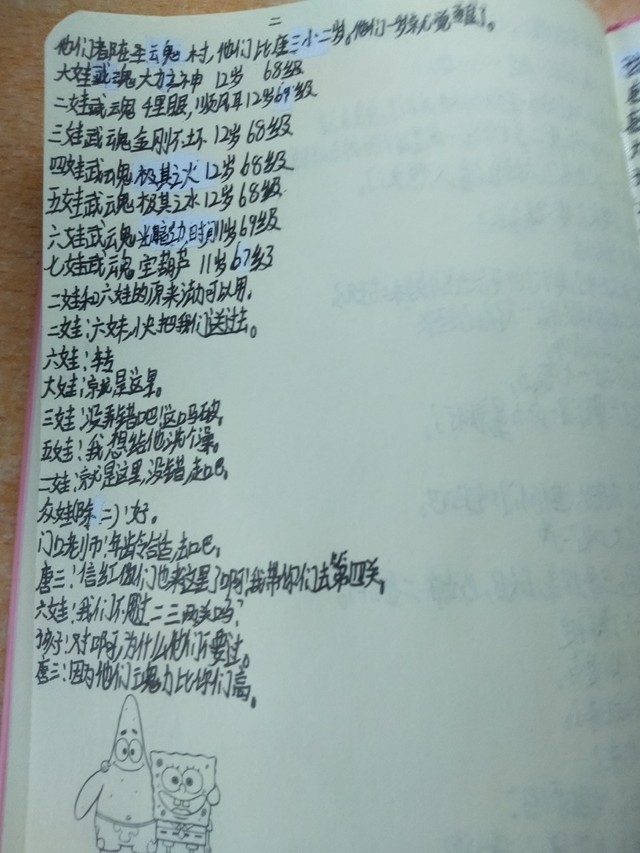 二
他们都住在圣云魂村,他们比唐三小二岁。他们一岁就觉醒了。
大娃武魂大力之神 12岁 68级
二娃武魂千里眼,顺风耳12岁69级
三娃武魂金刚不坏 12岁 68级
四娃武魂极其之火12岁68级
五娃武魂极其之水12岁68级
六娃武魂光暗幼,时间11岁69级
七娃武魂宝葫芦 11岁67级
二娃和六娃的原来活动可以用,
二娃:六妹,小火把我们送过去。
六娃:李专
大娃:就是这里。
三娃:没弄错吧!这吗破,
五娃:我想给他洗个澡。
二娃:就是这里,没错,走吧,
众娃(除二):好。
门口老师:年龄合适,去吧,
唐三:信红你们也来这里了啊!我帮你们去第四关,
六娃:我们不用过二三两关吗?
孩子:对啊,为什么他们不要过。
唐三:因为他们立魂力比你们高。